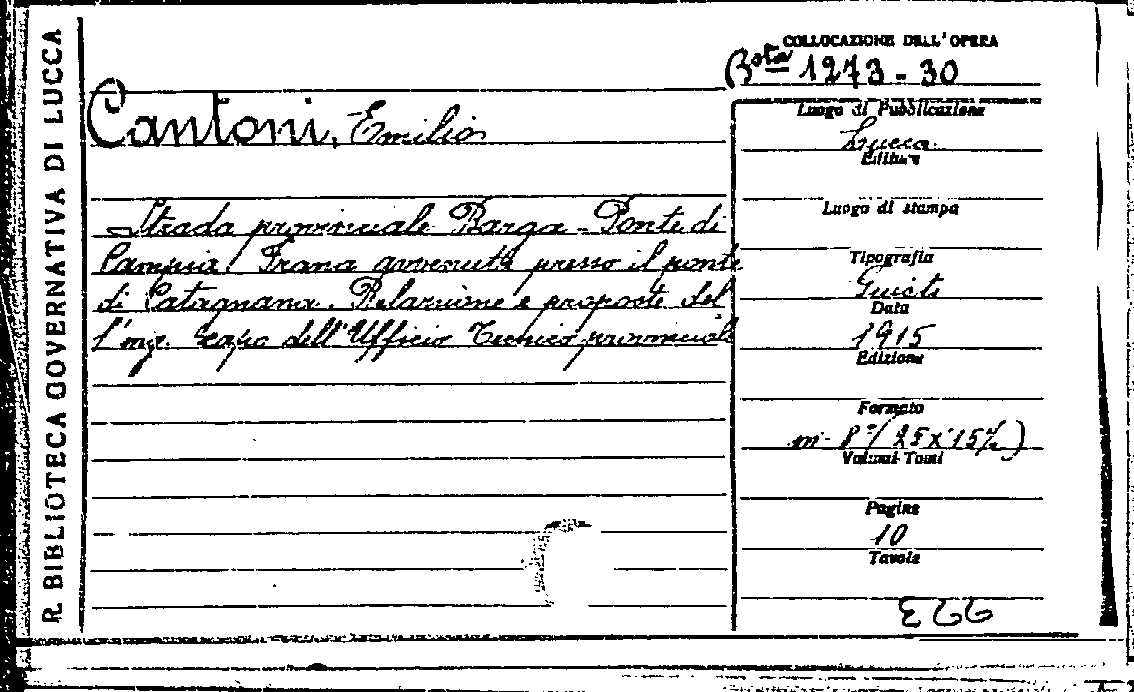 R. BIBLIOTECA GOVERNATIVA DI LUCCA
COLLOCAZIONE DELL'OPERA
Bsta 1273-30
Cantoni, Emilio
Strada provinciale Barga - Ponte di
Campia. Frana avvenuta presso il ponte
di Catagnana. Relazione e proposte del
l'ing. capo dell'Ufficio Tecnico provinciale
Luogo di Pubblicazione
Lucca
Editore
Luogo di stampa
Tipografia
Guidi
Data
1915
Edizione
Formato
in-8°(25x15½)
Volumi-Tomi
Pagine
10
Tavole